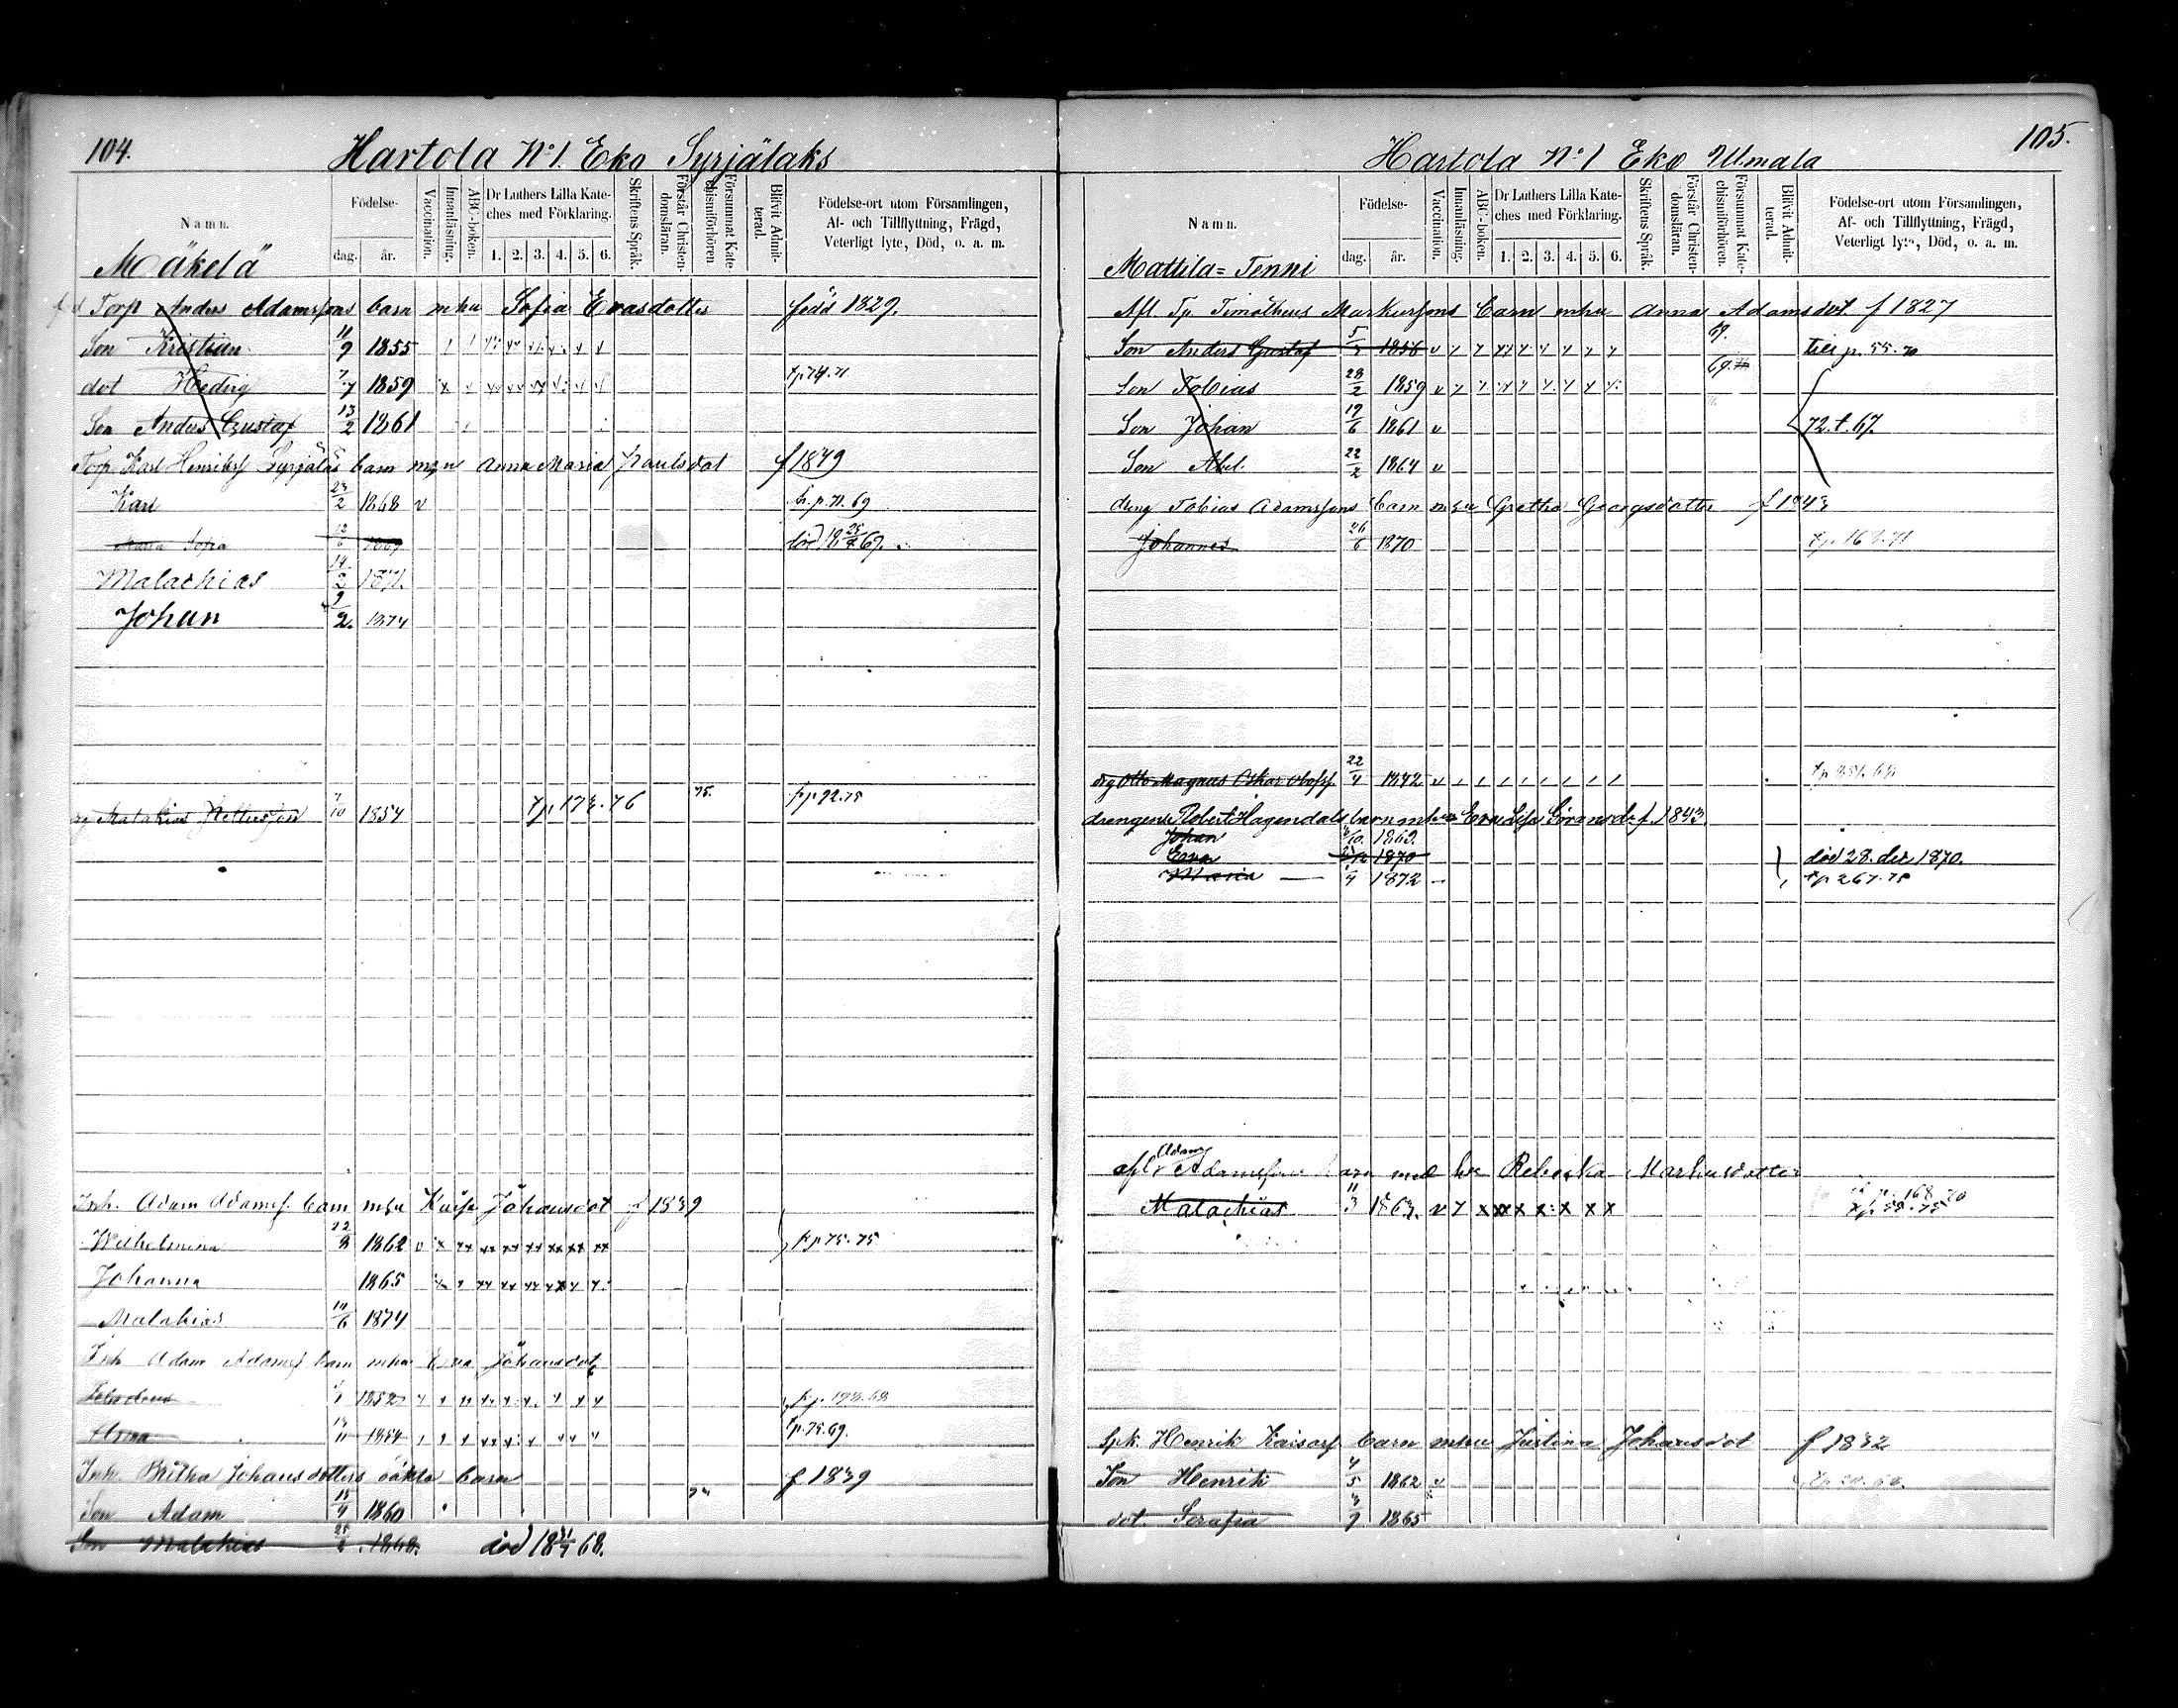 104.
Hartola No 1. Eko Syrjäläks
Namn.
Födelse-
dag.
år.
Vaccination.
Innanläsning.
ABC-boken.
Dr Luthers Lilla Kate-
ches med Förklaring.
1. 2. 3. 4. 5. 6.
Skriftens Språk.
Förstår Christen-
domsläran.
Försummat Kate-
chismiförhören
Blifvit Admit-
terad.
Födelse-ort utom Församlingen,
Af- och Tillflyttning, Frägd,
Veterligt lyte, Död, o. a. m.
Mäkelä
Torp Anders Adamssons barn m hu Sofia Evasdotter född 1829.
Son Kristian 11/9 1855
dot Hedvig 7/7 1859
Son Anders Gustaf 13/2 1861
Torp. Karl Henriksf Syrjäläs barn m hu Anna Maria Paulsdot f 1849
Karl 23/2 1868 v
Maria Sofia 12/6 1869
Malachias 14/2 1871.
Johan 9/2. 1874
Malakias 7/10 1854 7p. 173. 76 75. fp 92. 75
Inh. Adam Adamsf. barn m hu Kaisa Johansdot f 1839
Wilhelmina 22/8 1862 fp 75. 75
Johanna 1865
Malakias 14/6 1874
Inh Adam Adamsf barn m hu Eva Johansdot
1852
Anna 13/11 1854 tp. 75. 69.
Inh. Britha Johansdotters oäkta barn f 1839
Son Adam 15/4 1860
Son Malakias 1868. död 18 68.
105.
Hartola No 1 Eko Ulmala
Namn.
Födelse-
dag.
år.
Vaccination.
Innanläsning.
ABC-boken.
Dr Luthers Lilla Kate-
ches med Förklaring.
1. 2. 3. 4. 5. 6.
Skriftens Språk.
Förstår Christen-
domsläran.
Försummat Kate-
chismiförhören.
Blifvit Admit-
terad.
Födelse-ort utom Församlingen,
Af- och Tillflyttning, Frägd,
Veterligt lyte, Död, o. a. m.
Mattila = Tenni
Afl. Tp Timotheus Markussons barn m hu Anna Adamsdot f 1827
Son Anders Gustaf 1856 till p. 55. 70
Son Tobias 28/2 1859 69.
Son Johan 19/6 1861 v 72. t. 67.
Son Abel. 22/2 1864 v
dreng Tobias Adamssons barn m hu Gretha Georgsdotter f 1843
Johannes 26/6 1870
drg Otto Magnus Oskar Olofsf. 22/4 1842
drengens Robert Hagendals barn m hu Eva Lisa Göransd. f. 1843
Johan 1869.
Eva 1870 död 28. dec 1870.
Maria 1872 tp 267. 75
afl Adam Adamssons barn med hu Rebecka Markusdotter
Malachias 11/3 1863. p. 168. 70
Spk. Henrik Kaisasf barn m hu Justina Johansdot f 1832
Son Henrik 4/5 1862 v
dot. Serafia 1865